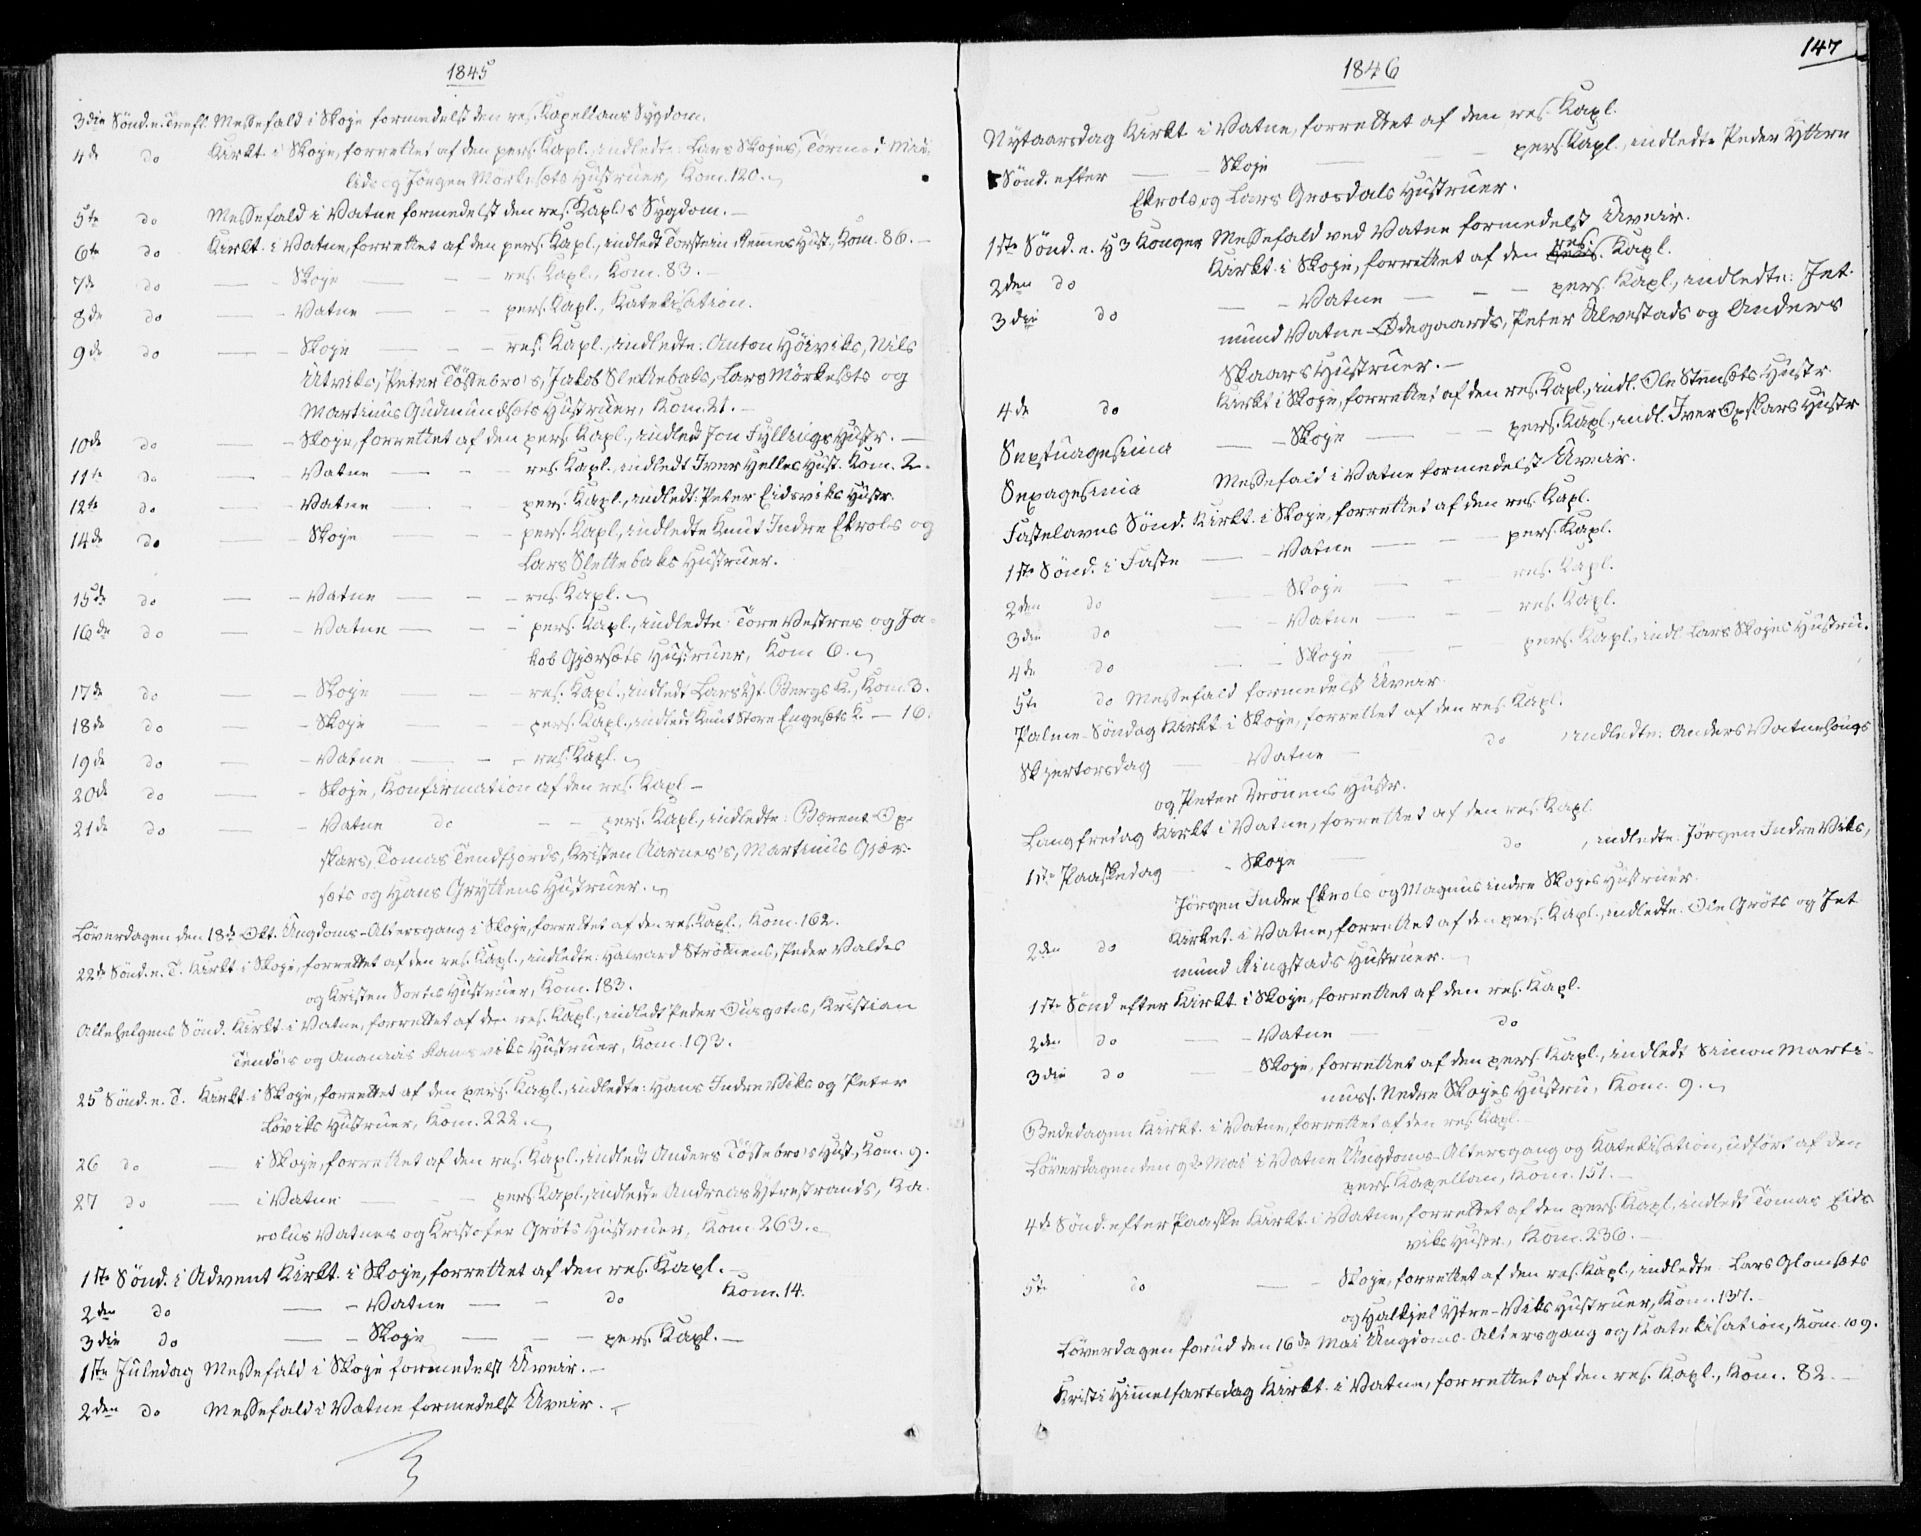 1845
3die Sønd. e. Tref. Messefald i Skoje formedelst den res. Kapellans Sygdom.
4de do Kirkt. i Skoje, forrettet af den pers. Kapl., indledte: Lars Skojes, Tormod
lids og Jørgen Mørkesæts Hustruer, Kom. 120.
5te do Messefald i Vatne formedelst den res. Kapl.s Sygdom. —
6te do Kirkt. i Vatne, forrettet af den pers. Kapl., indledt Torstein Remes Hust., Kom. 86. —
7de do — - Skoje — — - res. Kapl., Kom. 83. —
8de do — - Vatne — - - pers. Kapl., Katekisation.
9de do — - Skoje — - - res. Kapl., indledte: Anton Høiviks, Nils
Utviks, Peter Tøssebro's, Jakob Slettebaks, Lars Mørkesæts og
Martinus Gudmundsæts Hustruer, Kom. 21. —
10de do — - Skoje, forrettet af den pers. Kapl., indledt Jon Fyllings Hustr. —
11te do — - Vatne — - - res. Kapl., indledt Iver Helles Hust. Kom. 2.
12te do — - Vatne — - - pers. Kapl., indledt: Peter Eidsviks Hustr.
14de do — - Skoje — - - pers. Kapl., indledte Knut Indre Ekrols og
Lars Slettebaks Hustruer.
15de do — - Vatne — - - res. Kapl.
16de do — - Vatne — - - pers. Kapl., indledte: Tore Vestres og Ja-
kob Gjærsæts Hustruer, Kom 6.
17de do — - Skoje — - res. Kapl., indledt Lars Yt. Bergs K., Kom. 3.
18de do — - Skoje — - - pers. Kapl., indledt Knut Store Engesæts K. — 16.
19de do — - Vatne — - - res. Kapl.
20de do — - Skoje, Konfirmation af den res. Kapl —
21de do — - Vatne do - - pers. Kapl., indledte: Bærent Op-
skars, Tomas Tendfjords, Kristen Aarnes's, Martinus Gjær-
sæts og Hans Gryttens Hustruer.
Løverdagen den 18de Okt. Ungdoms-Altersgang i Skoje, forrettet af den res. Kapl., Kom. 162.
22de Sønd. e. T. Kirkt. i Skoje, forrettet af den res. Kapl., indledte: Halvard Strømmens, Peder Valdes
og Kristen Sortes Hustruer, Kom. 183.
Allehelgens Sønd. Kirkt. i Vatne, forrettet af den res. Kapl., indledt Peder Kristian
Tendøis og Ananias Hustruer, Kom. 193.
25 Sønd. e. T. Kirkt. i Skoje, forrettet af den pers. Kapl., indledte: Hans Indre Viks og Peter
Løviks Hustruer, Kom. 222.
26 do — i Skoje, forrettet af den res. Kapl., indledt Anders Tøssebro's Hust., Kom. 9.
27 do — i Vatne — - - pers. Kapl., indledte Andreas Ytrestrands, Ka-
rolus Vatnes og Kristofer Grøts Hustruer, Kom. 263.
1ste Sønd. i Advent Kirkt. i Skoje, forrettet af den res. Kapl. —
2den do — - Vatne — - do Kom. 14.
3die do — - Skoje — - - pers. Kapl. —
1ste Juledag Messefald i Skoje formedelst Uveir. —
2den do Messefald i Vatne formedelst Uveir.
147
1846
Nytaarsdag Kirkt. i Vatne, forrettet af den res. Kapl.
Sønd. efter — - Skoje — - - pers. Kapl., indledte Peder Ytre
Ekrols og Lars Græsdals Hustruer.
1ste Sønd. e. H 3 Konger Messefald ved Vatne formedelst Uveir.
2den do Kirkt. i Skoje, forrettet af den res. Kapl.
3die do — - Vatne — - - pers. Kapl., indledte: Jet-
mund Vatne-Ødegaards, Peter Ulvestads og Anders
Skaars Hustruer. —
4de do Kirkt. i Skoje, forrettet af den res. Kapl., indl. Ole Stensæts Hustr.
Septuagesima — - Skoje — - pers. Kapl., indl. Iver Opskars Hustr
Sexagesima Messefald i Vatne formedelst Uveir.
Fastelavns Sønd. Kirkt. i Skoje, forrettet af den res. Kapl.
1ste Sønd. i Faste — - Vatne — - - pers. Kapl.
2den do — - Skoje — - - res. Kapl.
3die do — - Vatne — - - res. Kapl.
4de do — - Skoje — - pers. Kapl., indl. Lars Skojes Hustru.
5te do Messefald formedelst Uveir.
Palme-Søndag Kirkt. i Skoje, forrettet af den res. Kapl.
Skjertorsdag — Vatne — do , indledte: Anders Vatnehougs
og Peter Drønens Hustr.
Langfredag Kirkt. i Vatne, forrettet af den res. Kapl.
1ste Paaskedag — - Skoje — do , indledte Jørgen Indre Viks,
Jørgen Indre Ekrols og Magnus indre Skojes Hustruer.
2den do Kirket. i Vatne, forrettet af den pers. Kapl., indledte: Ole Grøts og Jet
mund Ringstads Hustruer.
1ste Sønd efter Kirkt. i Skoje, forrettet af den res. Kapl.
2den do — - Vatne — do
3die do — - Skoje, forrettet af den pers. Kapl., indledt Simon Marti-
nuss. Nedre Skojes Hustru, Kom. 9.
Bededagen Kirkt. i Vatne, forrettet af den res. Kapl. —
Løverdagen den 9de Mai i Vatne Ungdoms-Altersgang og Katekisation, udført af den
pers. Kapellan, Kom. 151. —
4de Sønd. efter Paaske Kirkt. i Vatne, forrettet af den pers Kapl., indledt Tomas Eids
viks Hustr., Kom. 236. —
5te do — - Skoje, forrettet af den res. Kapl., indledte Lars Glomsæts
og Halkjel Ytre-Viks Hustruer, Kom. 137. —
Løverdagen forud den 16de Mai Ungdoms-Altersgang og Katekisation, Kom. 109.
Kristi Himmelfartsdag Kirkt. i Vatne, forrettet af den res. Kapl., Kom. 82. —